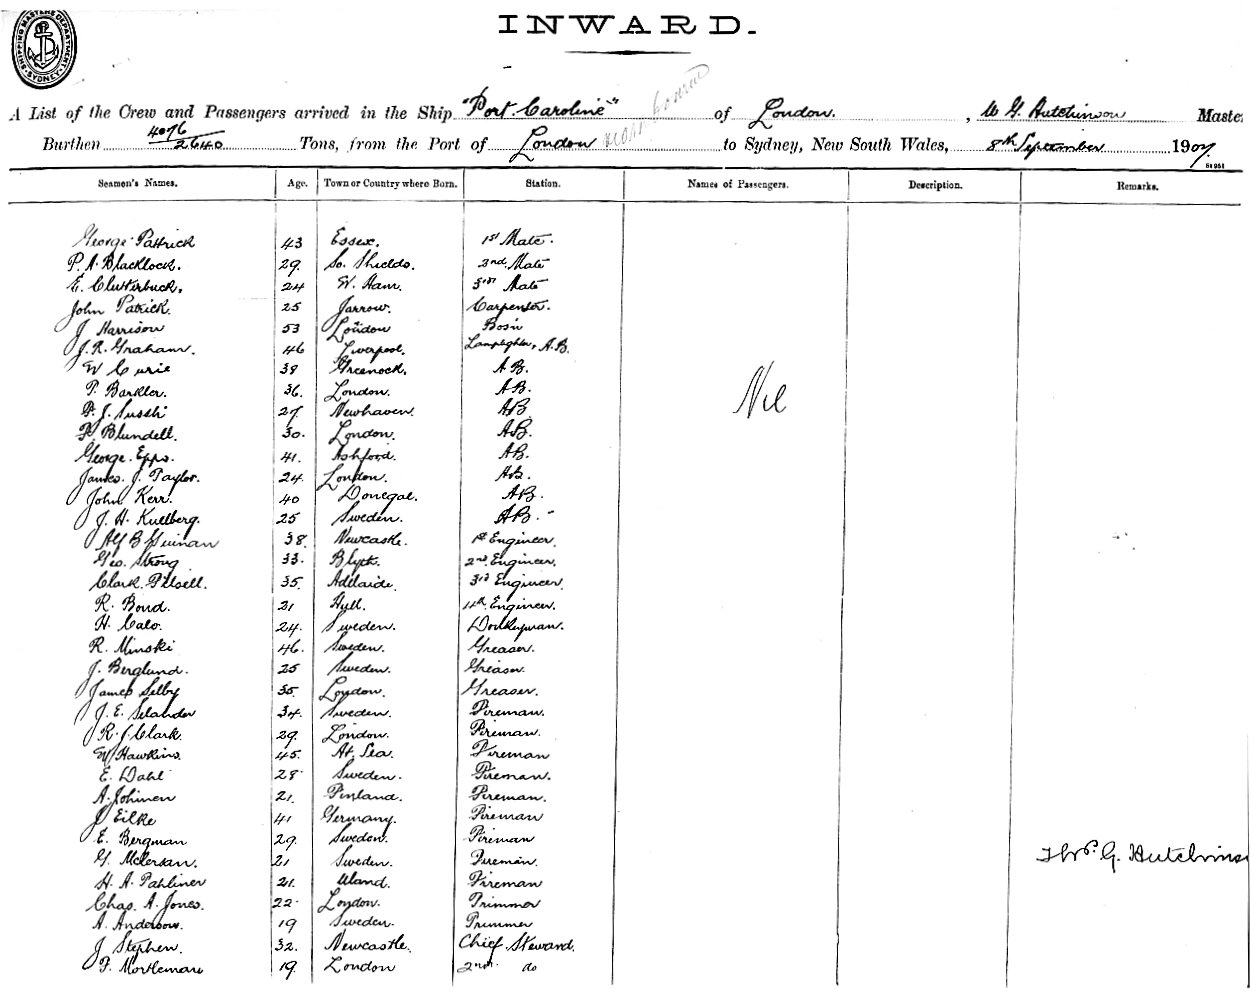 SHIPPING MASTERS DEPARTMENT SYDNEY
INWARD.
A List of the Crew and Passengers arrived in the Ship "Port Caroline" of London. , W G Hutchinson Maste
Burthen 4076/2640 Tons, from the Port of London to Sydney, New South Wales, 8th September 1907
Seamen's Names. Age. Town or Country where Born. Station. Names of Passengers. Description. Remarks.
George Pattrick 43 Essex. 1st Mate.
P. A. Blacklock. 29. So. Shields. 2nd Mate
E. Clutterbuck. 24 W. Ham. 3rd Mate
John Patrick. 25 Jarrow. Carpenter.
J Harrison 53 London Bosn
J. R. Graham. 46 Liverpool. Lamplighter, A.B.
W Currie 38 Greenock. A.B.
P. Barkler. 36. London. A.B.
J. Sussti 27 Newhaven. AB
Blundell. 30. London. AB.
George Epps. 41. Ashford. A.B.
James. J. Taylor. 24. London. AB.
John Kerr. 40 Donegal. AB.
J. H. Kullberg. 25 Sweden. AB.
Alf B Guinan 38. Newcastle. 1st Engineer.
Geo. Strong 33. Blyth. 2nd Engineer.
Clark Pilsell. 35. Adelaide. 3rd Engineer
R. Bond. 21 Hull. 4th Engineer.
H. Calo. 24. Sweden. Donkeyman.
R. Minski 46. Sweden. Greaser.
J. Berglund. 25 Sweden. Greaser
James Selby 35. London. Greaser.
J. E. Selander 34. Sweden. Fireman.
R. J. Clark. 29. London. Fireman.
W Hawkins. 45. At Sea. Fireman
E. Dahl 28 Sweden. Fireman.
A. Johinen 21. Finland. Fireman.
J Eilke 41 Germany. Fireman
E. Bergman 29. Sweden. Fireman
G. 21 Sweden. Fireman
H. A. Pahliner 21. Uland. Fireman
Chas. A. Jones. 22. London. Trimmer
A. Anderson. 19 Sweden. Trimmer
J Stephen. 32. Newcastle. Chief Steward.
F. Mortlemans 19. London 2nd do
Nil
Thos. G. Hutchins